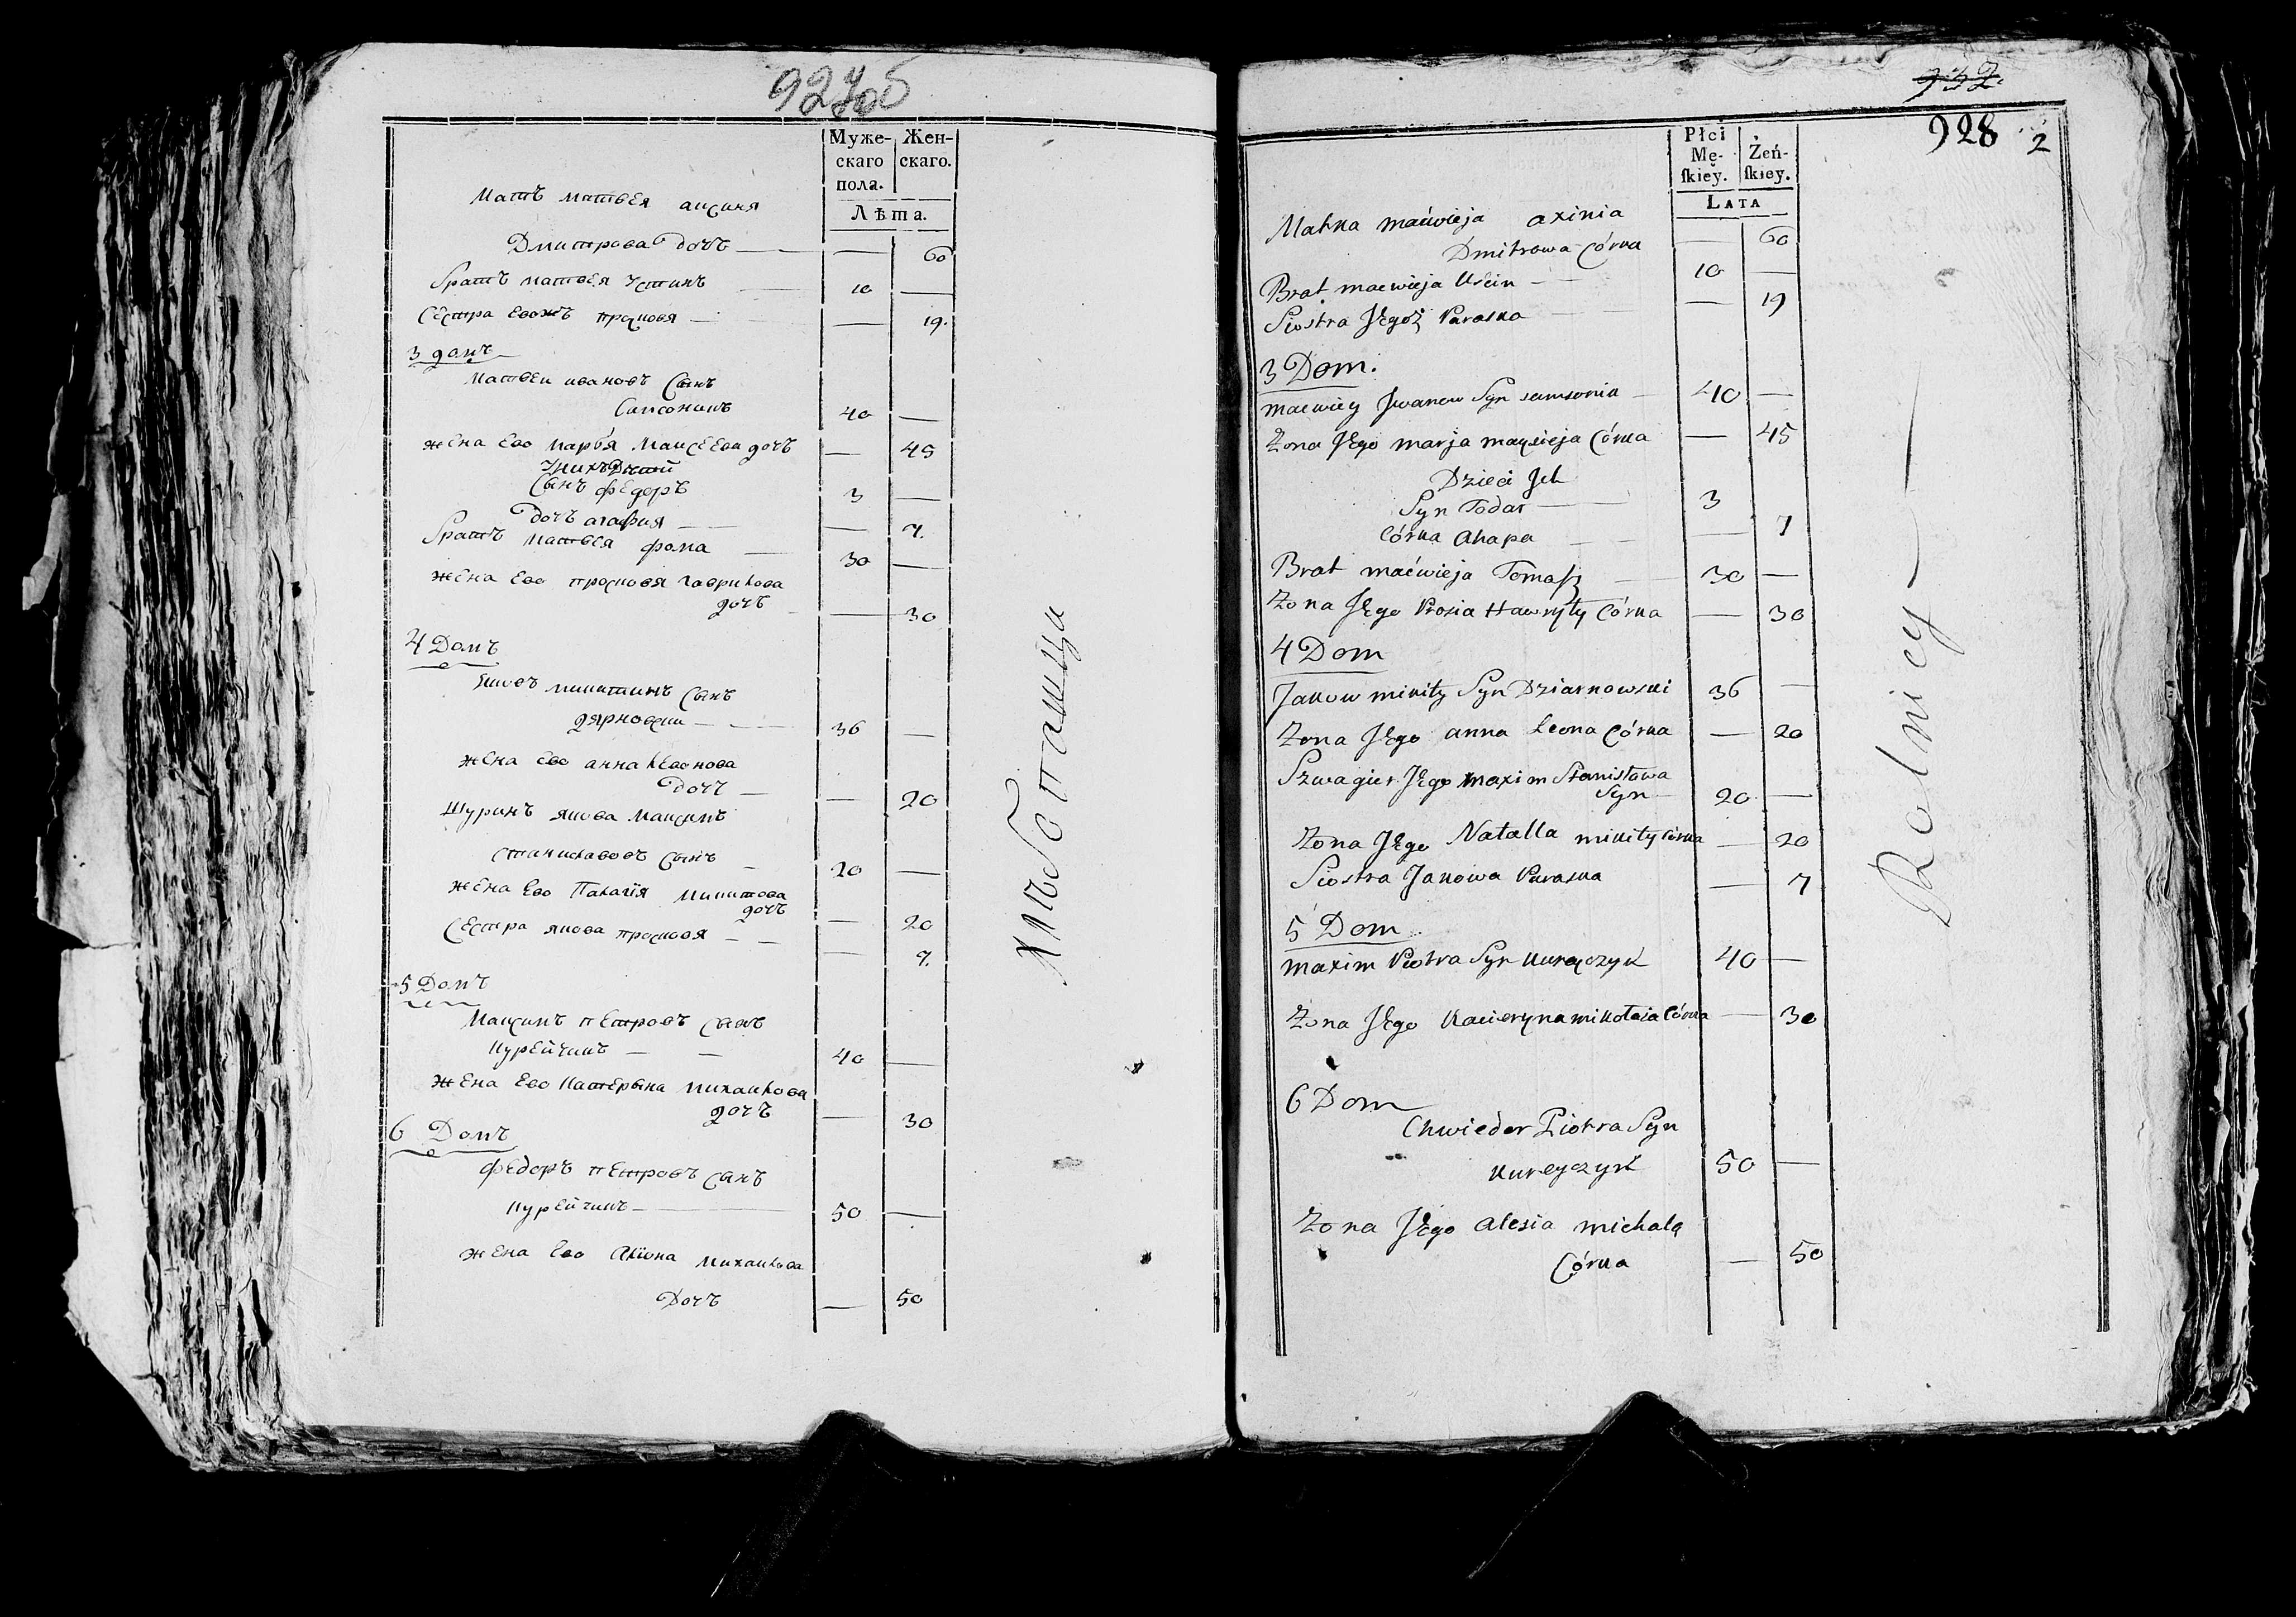 927об
Муже- Жен-
скаго скаго.
пола.
Лѣта.
Мать матвея аксиня
Дмитрова дочь — — 60
Братъ матвея Устинъ — 10 —
Сестра евожъ прасковя — — 19.
3 домъ
Матвеи ивановъ сынъ
Самсоникъ 40 —
жена ево марья Максеева дочь — 45
У них детей
Сынъ федоръ 3 —
дочь агафия — — 7.
Братъ матвея фома — 30 —
жена ево прасковя гаврилова
дочь — — 30
4 Домъ
Яковъ микитинъ сынъ
дярновски — — 36 —
жена ево анна леонова
дочь — — 20
Шуринъ якова максимъ
станиславовъ сынъ — 20 —
жена ево Палагія микитова
дочь — 20
Сестра якова прасковя — — — 7.
5 Домъ
Максимъ петровъ сынъ
курейчикъ — — 40 —
жена ево катерына михаилова
дочь — 30
6 Домъ
федоръ петровъ сынъ
курейчикъ — 50 —
жена ево Алiона михаилова
Дочь — 50
Хлѣбопашцы
932.
928 2
Płci
Mę- Żeń-
skiey. skiey.
LATA
Matka maćwieja axinia
Dmitrowa Córka — 60
Brat maćwieja Uścin — 10 —
Siostra Jegoż Paraska — — 19
3 Dom.
maćwiey Jwanow Syn samsonik — 40 —
Żona Jego marja mayseja Córka — 45
Dzieci Jch
Syn Todar — 3
Córka Ahapa — — — 7
Brat maćwieja Tomasz — 30 —
Żona Jego Prosia Hawryły Córka — 30
4 Dom
Jakow mikity Syn Dziarnowski 36 —
Żona Jego anna Leona Córka — 20
Szwagier Jego maxim Stanisława
Syn — 20 —
Żona Jego Natalla mikity Córka — 20
Siostra Jakowa Paraska — 7
5 Dom
maxim Piotra Syn kureyczyk 40 —
Żona Jego Kacieryna mikołaia Córka — 30
6 Dom
Chwieder Piotra Syn
kureyczyk 50 —
Żona Jego alesia michała
Córka — 50
Rolnicy —